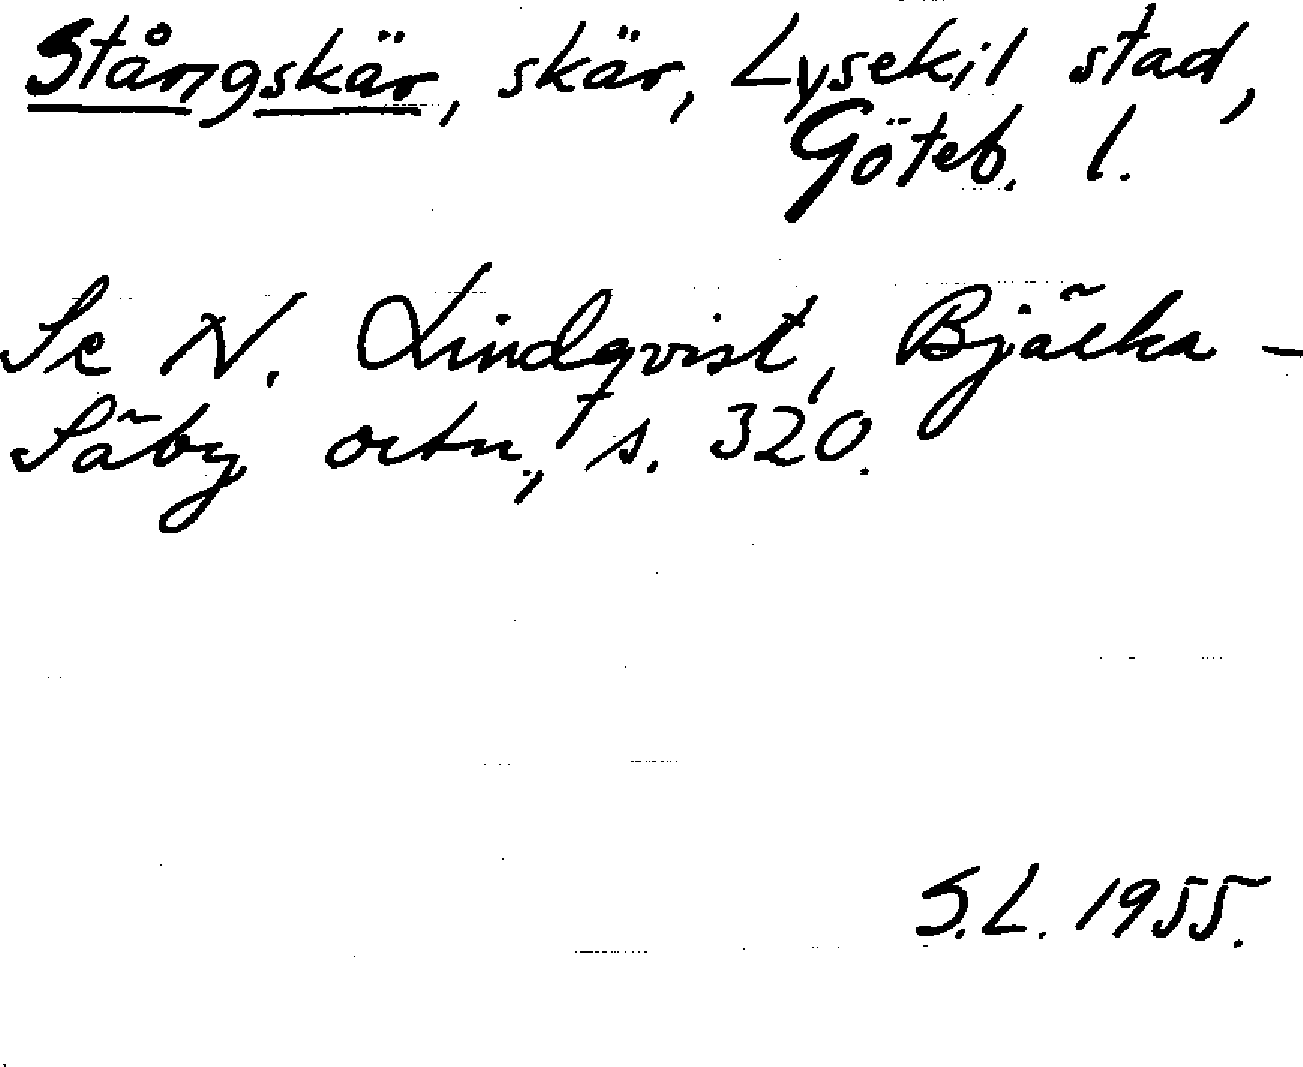 Stångskär, skär, Lysekil stad,
Göteb. l.
Se N. Lindqvist, Bjärka -
Säby ortn., s. 320.
S.L. 1955.